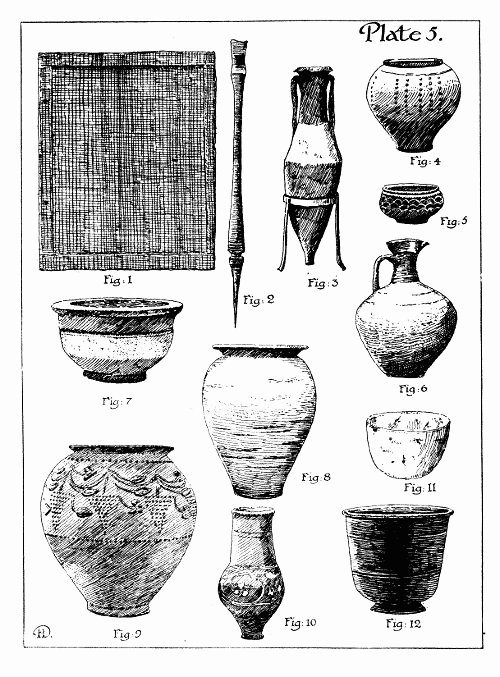 Plate 5.
Fig: 1
Fig: 2
Fig: 3
Fig: 4
Fig: 5
Fig: 6
Fig: 7
Fig: 8
Fig: 11
Fig: 9
Fig: 10
Fig: 12